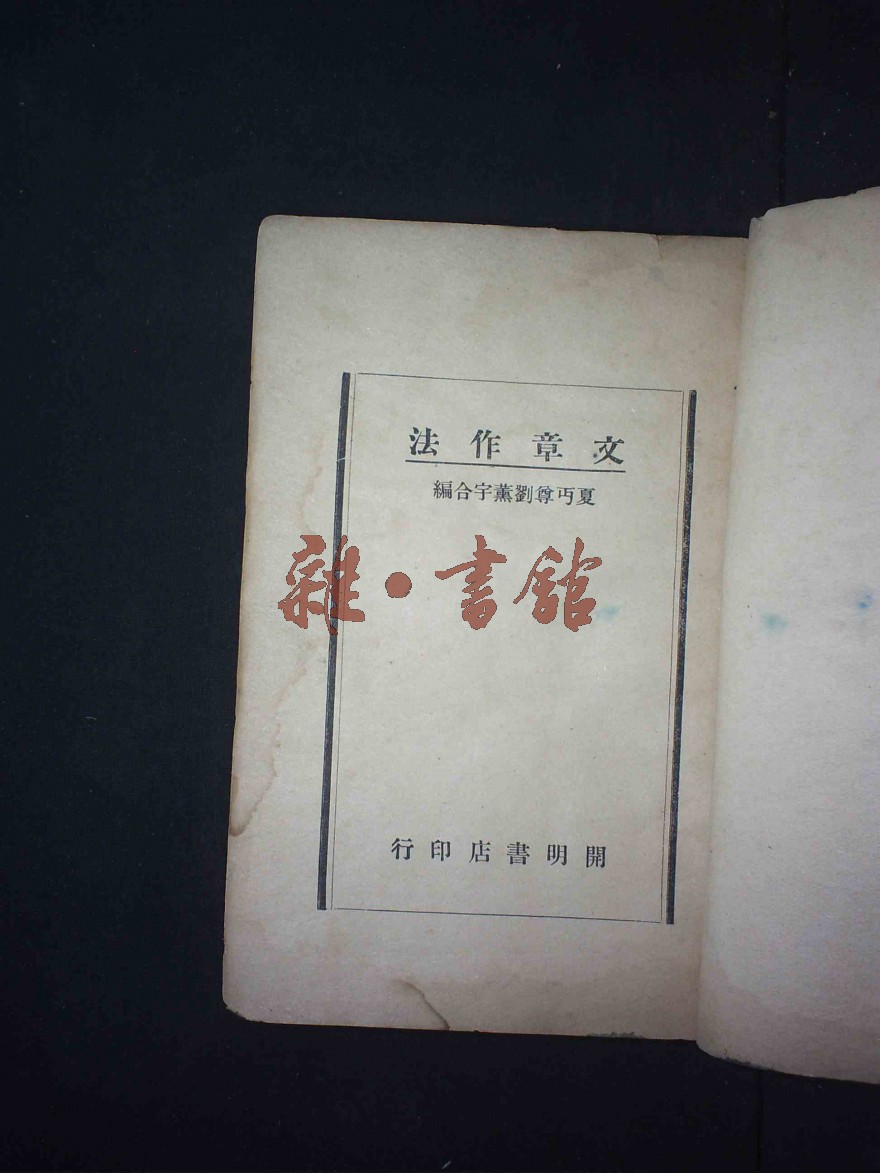 文章作法
夏丏尊劉薰宇合編
雜·書館
開明書店印行